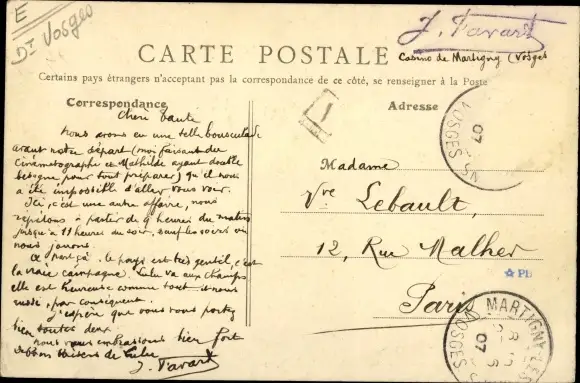 E
Dt Vosges
J. Tavart
Casino de Martigny (Vosges
CARTE POSTALE
Certains pays étrangers n'acceptant pas la correspondance de ce côté, se renseigner à la Poste
Correspondance
Adresse
Chère tante
Nous avons eu une telle bousculade
avant notre départ (moi faisant du
cinématographe et Mathilde ayant double
besogne pour tout préparer) qu'il nous
a été impossible d'aller vous voir.
Ici, c'est une autre affaire, nous
répétons à partir de 9 heures du matin
jusqu'à 11 heures du soir, sauf les soirs où
nous jouons.
le pays est très gentil, c'est
la vraie campagne. Lulu va aux champs
elle est heureuse comme tout et nous
aussi, par conséquent.
J'espère que vous vous portez
bien toutes deux
nous vous embrassons bien fort
et bons baisers de Lulu
J. Tavart
Madame
Vve Lebault,
12, Rue Malher
Paris
VOSGES
07
MARTIGNY-LES
VOSGES
07